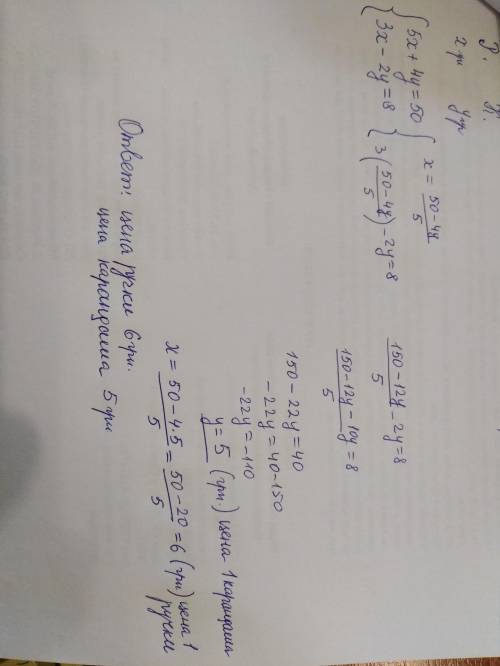 Р. К.
x грн y грн
{5x + 4y = 50
{3x - 2y = 8
{x = (50 - 4y)/5
{3((50 - 4y)/5) - 2y = 8
(150 - 12y)/5 - 2y = 8
(150 - 12y - 10y)/5 = 8
150 - 22y = 40
-22y = 40 - 150
-22y = -110
y = 5 (грн.) цена 1 карандаша
x = (50 - 4·5)/5 = (50 - 20)/5 = 6 (грн.) цена 1 ручки
Ответ: цена ручки 6 грн.
цена карандаша 5 грн